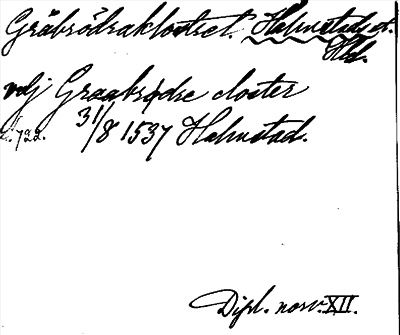 Gråbrödraklostret. Halmstad st.
Hld.
vdj Graabrødre closter
s. 722. 31/8 1537 Halmstad.
Dipl. norv. XII.